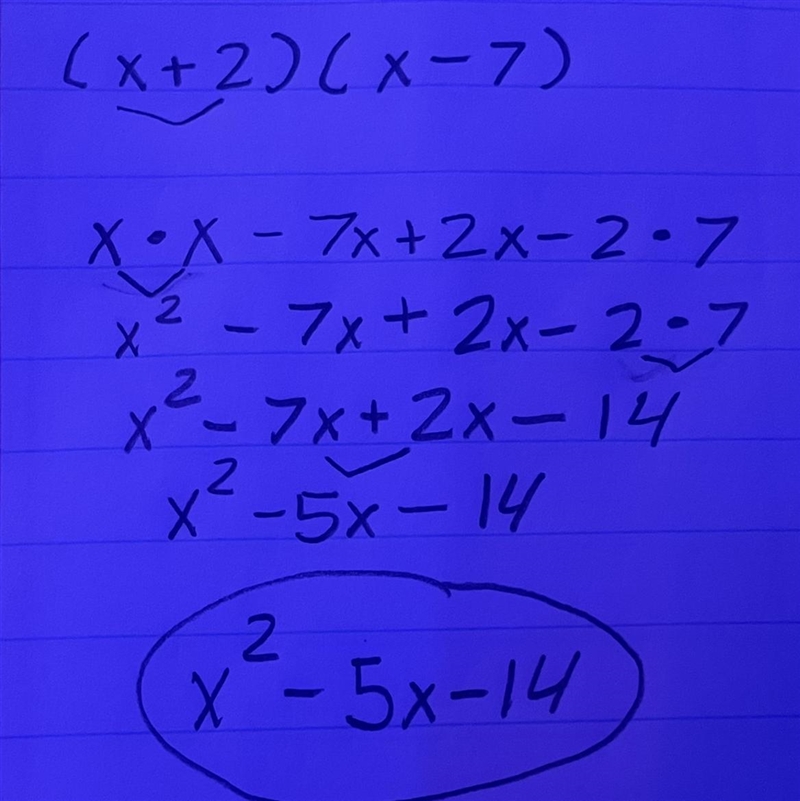 (x+2)(x-7)
x·x - 7x+2x-2·7
x² - 7x+2x-2·7
x²- 7x+2x-14
x²-5x-14
x²-5x-14